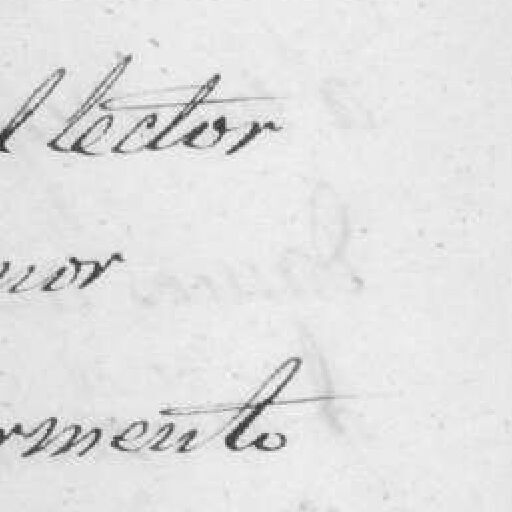 l lector
nor
rmento